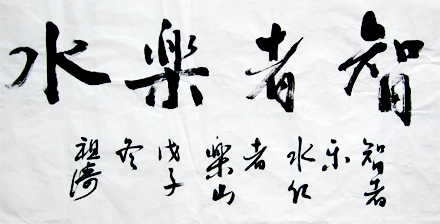 智者樂水
智者
乐
水仁
者
樂山
戊子
冬
祖涛